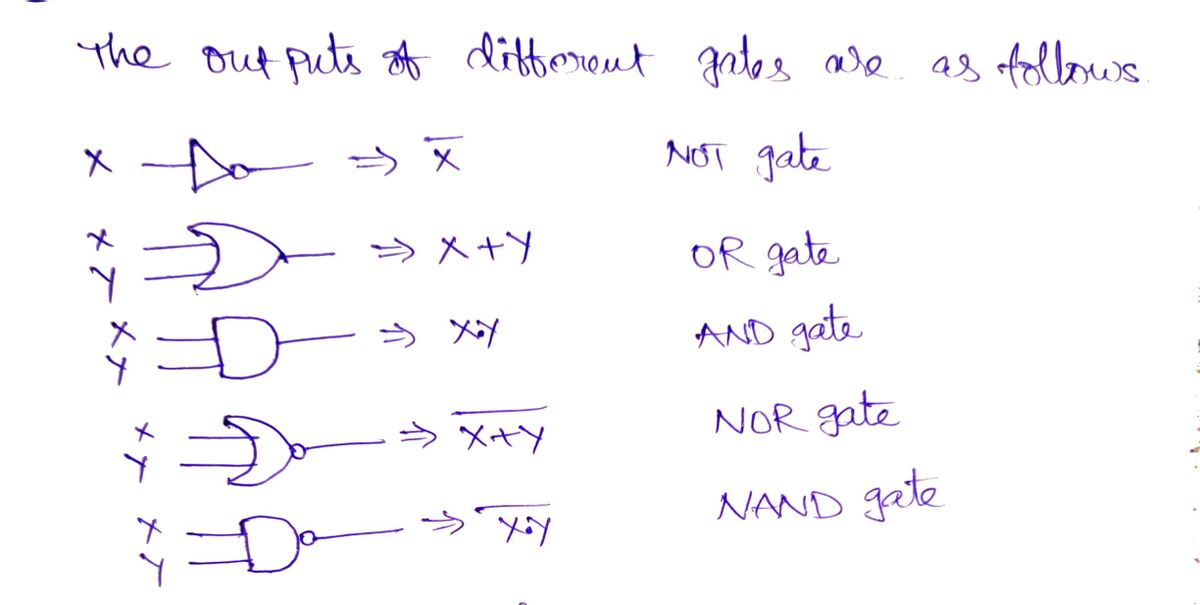 The outputs of different gates are as follows.
X ⇒ X̅ NOT gate
X
Y ⇒ X+Y OR gate
X
Y ⇒ X·Y AND gate
X
Y ⇒ X̅+̅Y̅ NOR gate
X
Y ⇒ X̅·̅Y̅ NAND gate